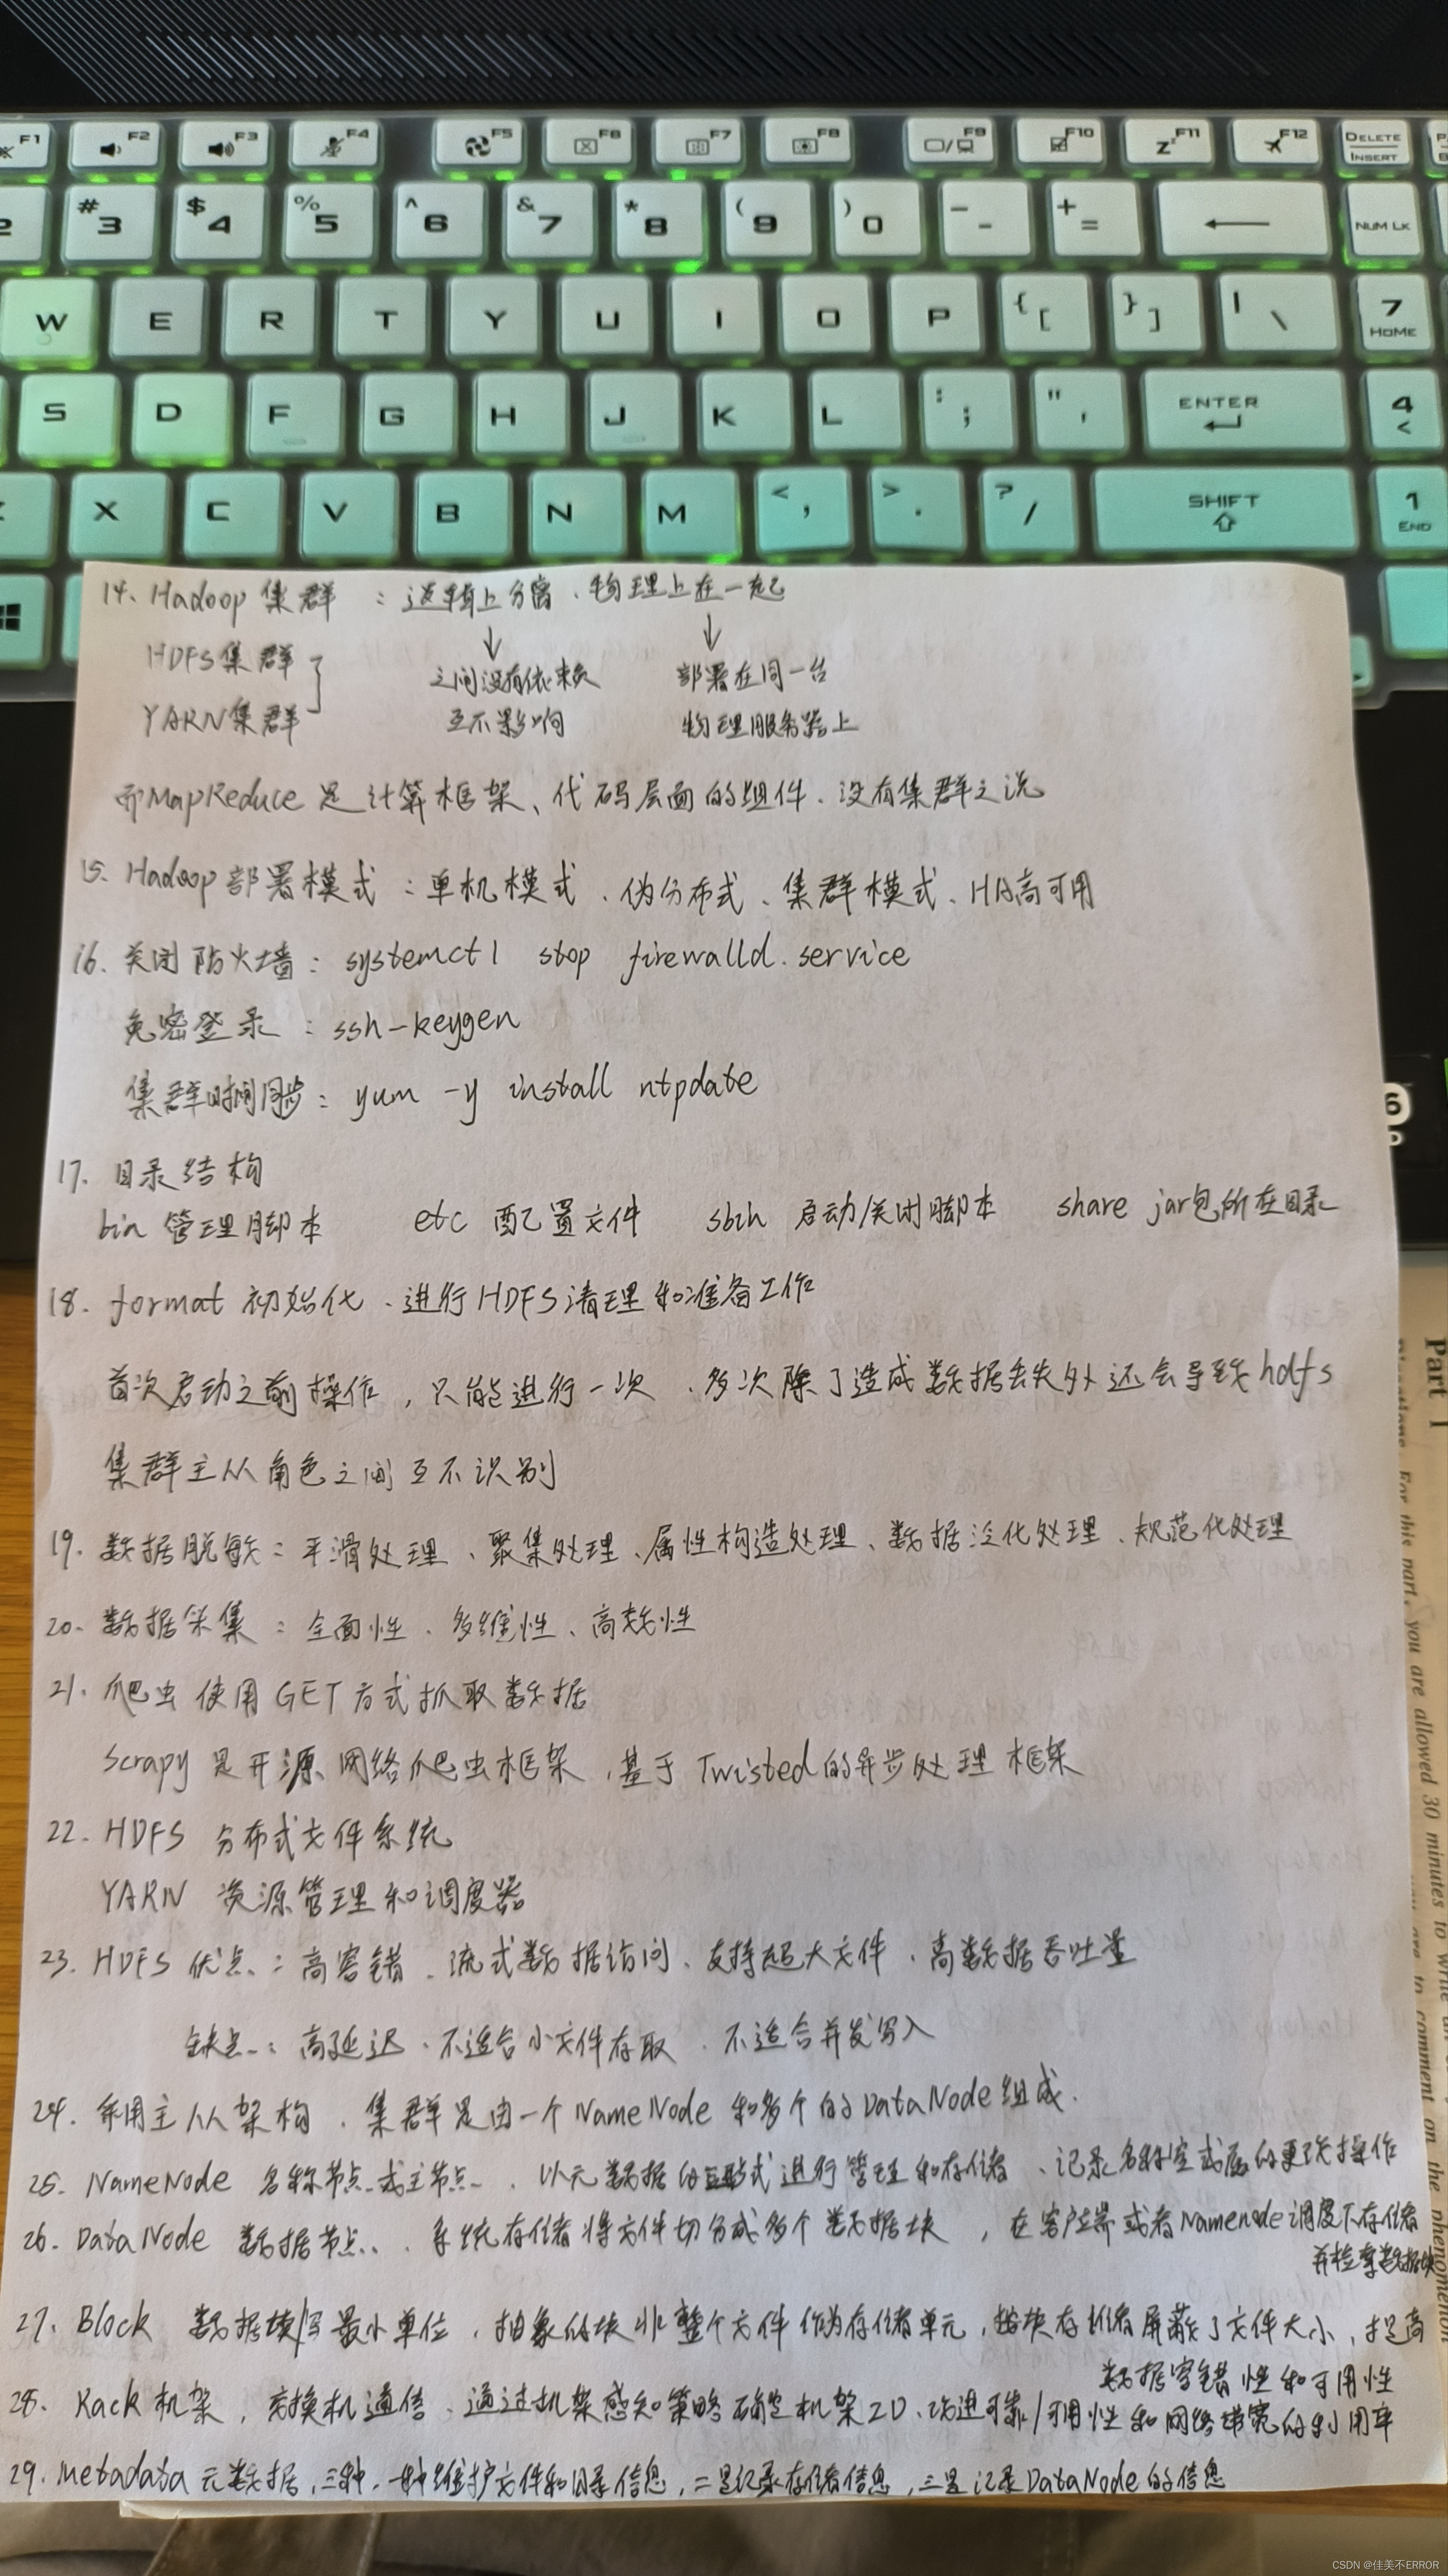 F1 F2 F3 F4 F5 F6 F7 F8 F9 F10 F11 F12 DELETE INSERT
2 # 3 $ 4 % 5 ^ 6 & 7 * 8 ( 9 ) 0 - - + = NUM LK
W E R T Y U I O P { [ } ] | \ 7 HOME
S D F G H J K L : ; " ' ENTER 4 <
X C V B N M < , > . ? / SHIFT 1 END
14、Hadoop 集群 : 逻辑上分离、物理上在一起
HDFS集群 之间没有依赖 部署在同一台
YARN集群 互不影响 物理服务器上
而MapReduce 是计算框架、代码层面的组件、没有集群之说
15. Hadoop 部署模式 : 单机模式、伪分布式、集群模式、HA高可用
16. 关闭防火墙 : systemctl stop firewalld.service
免密登录 : ssh-keygen
集群时间同步 : yum -y install ntpdate
17. 目录结构
bin 管理脚本 etc 配置文件 sbin 启动/关闭脚本 share jar包所在目录
18. format 初始化、进行HDFS清理和准备工作
首次启动之前操作，只能进行一次、多次除了造成数据丢失外还会导致hdfs
集群主从角色之间互不识别
19. 数据脱敏 : 平滑处理、聚集处理、属性构造处理、数据泛化处理、规范化处理
20. 数据采集 : 全面性、多维性、高效性
21. 爬虫 使用GET方式抓取数据
Scrapy 是开源网络爬虫框架，基于Twisted的异步处理框架
22. HDFS 分布式文件系统
YARN 资源管理和调度器
23. HDFS 优点 : 高容错、流式数据访问、支持超大文件、高数据吞吐量
缺点 : 高延迟、不适合小文件存取、不适合并发写入
24. 采用主从架构、集群是由一个NameNode 和多个的DataNode组成.
25. NameNode 名称节点或主节点、以元数据的形式进行管理和存储、记录名称空或属的更改操作
26. DataNode 数据节点、系统存储将文件切分成多个数据块，在客户端或者Namenode调度下存储
并检索数据块
27. Block 数据块/写最小单位，抽象的块非整个文件作为存储单元，按块存储屏蔽了文件大小，提高
数据容错性和可用性
28. Rack 机架，交换机通信、通过机架感知策略确定机架ID、改进可靠/可用性和网络带宽的利用率
29. Metadata 元数据，三种，一种维护文件和目录信息，二是记录存储信息，三是记录DataNode的信息
Part I
For this part, you are allowed 30 minutes to write
to comment on the phenomenon
CSDN @佳美不ERROR